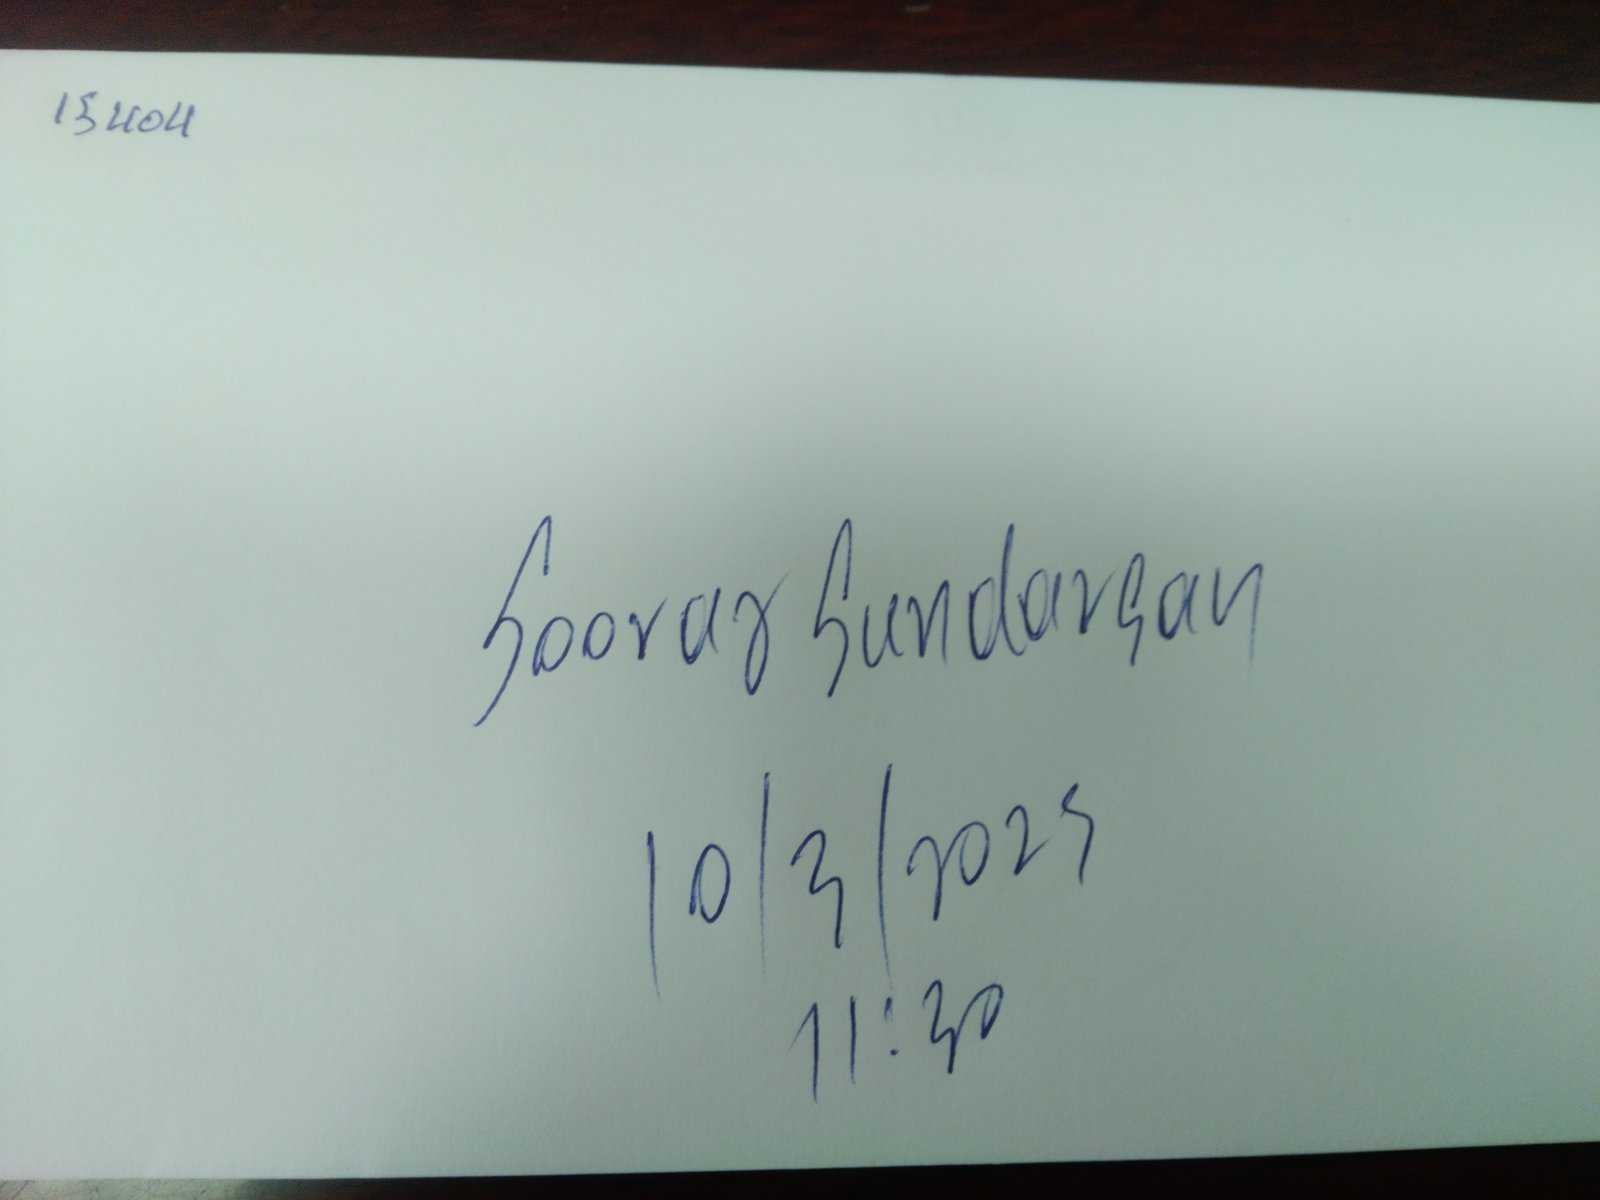 15404
Sooraj Sundarsan
10/3/2025
11:30